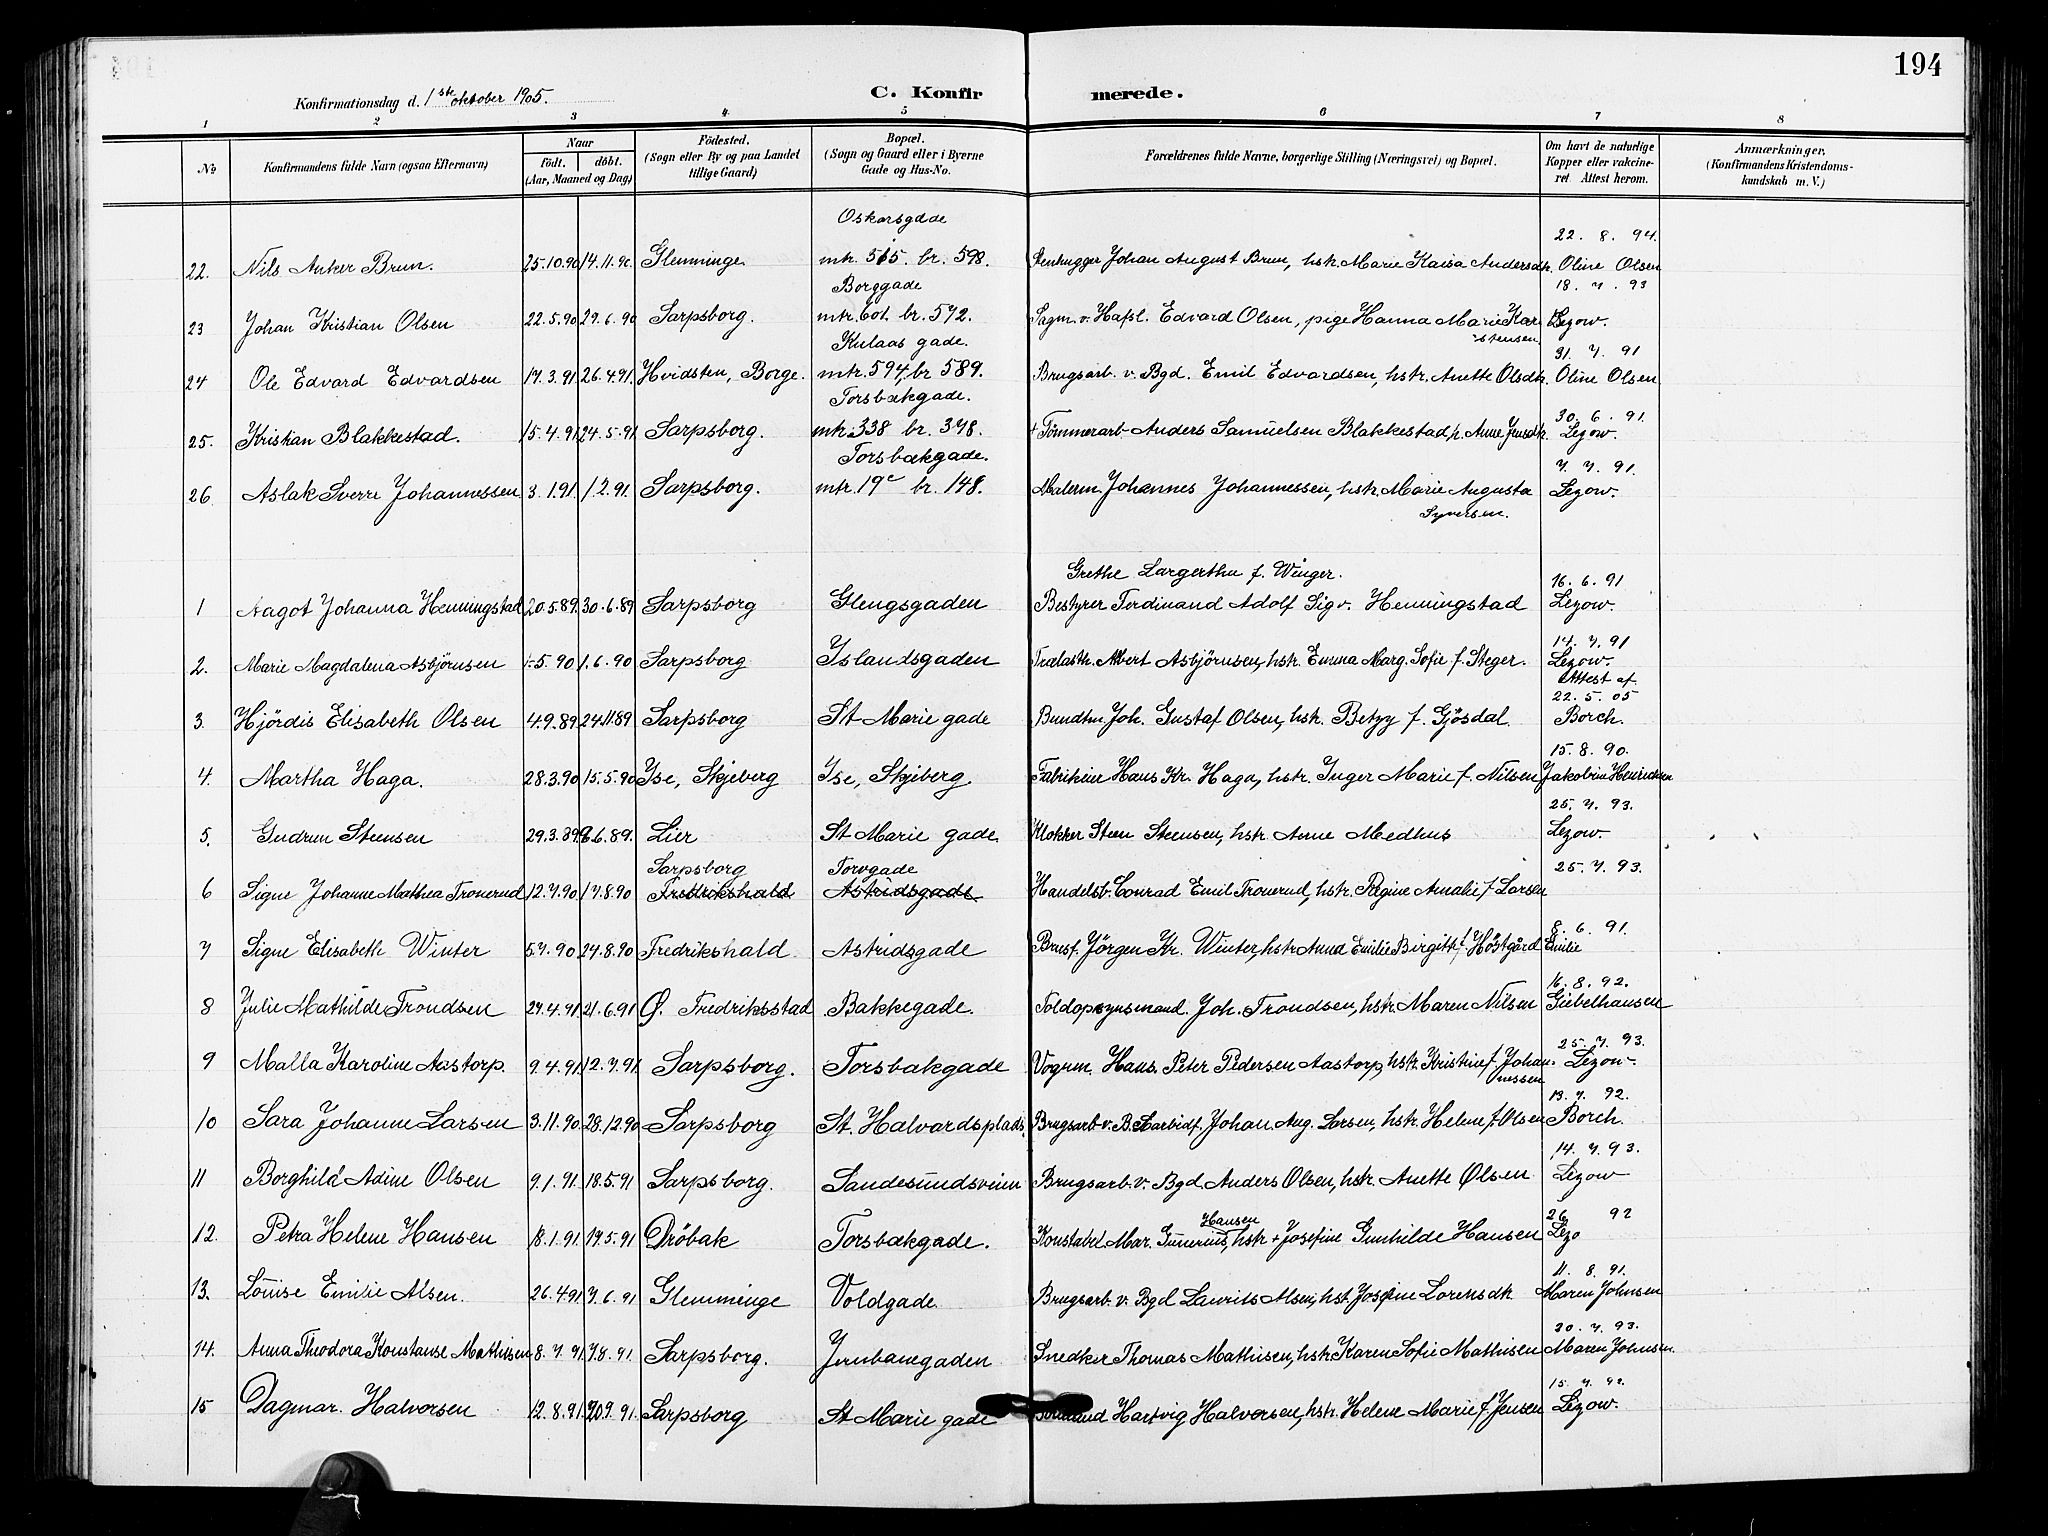 194
Konfirmationsdag d. 1ste oktober 1905.
C. Konfirmerede.
1 2 3 4 5 6 7 8
No
Konfirmandens fulde Navn (ogsaa Efternavn)
Naar
födt. döbt.
(Aar, Maaned og Dag)
Födested.
(Sogn eller By og paa Landet
tillige Gaard)
Bopæl.
(Sogn og Gaard eller i Byerne
Gade og Hus-No.
Forældrenes fulde Navne, borgerlige Stilling (Næringsvei) og Bopæl.
Om havt de naturlige
Kopper eller vakcine-
ret Attest herom.
Anmærkninger.
(Konfirmandens Kristendoms-
kundskab m. V.)
Oskarsgade 22. 8. 94.
22. Nils Anker Brun. 25.10.90 14.11.90 Glemminge mtr. 515 br. 598. Stenhugger Johan August Brun, hstr. Marie Kaisa Andersdtr. Oline Olsen
Borggade 18. 7. 93
23 Johan Kristian Olsen 22.5.90 29.6.90 Sarpsborg. mtr. 601. br. 572. Sagm. v. Hafsl. Edvard Olsen, pige Hanna Marie Kar Lezow.
stensen
Kulaas gade. 31. 7. 91
24 Ole Edvard Edvardsen 17.3.91 26.4.91. Hvidsten, Borge. mtr. 594, br 589. Brugsarb. v. Bgd. Emil Edvardsen, hstr. Anette Olsdtr. Oline Olsen
Torsbækgade. 30. 6. 91.
25. Kristian Blakkestad. 15.4.91 24.5.91 Sarpsborg. mtr. 338 br. 348. + Tömmerarb. Anders Samuelsen Blakkestad, p. Anne Jensdtr. Lezow.
Torsbækgade. 7. 7. 91.
26 Aslak Sverre Johannessen 3.1.91 1.2.91. Sarpsborg. mtr. 19c br. 148. Malerm. Johannes Johannessen, hstr. Marie Augusta Lezow.
Syversen.
Grethe Largertha f. Winger. 16. 6. 91
1 Aagot Johanna Henningstad 20.5.89. 30.6.89 Sarpsborg Glengsgaden Bestyrer Ferdinand Adolf Sigv. Henningstad Lezow.
14. 7. 91
2. Marie Magdalena Asbjörnsen 5.90 1.6.90 Sarpsborg Yslandsgaden Trælasth. Albert Asbjörnsen, hstr. Emma Marg. Sofie f. Steger. Lezow.
Attest af
22. 5. 05
3. Hjördis Elisabeth Olsen 4.9.89 24.11.89 Sarpsborg St Marie gade Bundtm. Joh. Gustaf Olsen, hstr. Betzy f. Gjösdal. Borch.
15. 8. 90.
4. Martha Haga. 28.3.90 15.5.90 Yse, Skjeberg Yse, Skjeberg Fabrikeier Hans Kr. Haga, hstr. Inger Marie f. Nilsen Jakobine Henriksen
25. 7. 93.
5. Gudrun Steensen 29.3.89 6.89. Lier St Marie gade Klokker Steen Steensen, hstr. Anne Medhus Lezow.
Sarpsborg Torvgade 25. 7. 93.
6 Signe Johanne Mathea Tronerud 12.7.90 17.8.90 Fredrikshald Astridsgade Handelsb. Conrad Emil Tronerud, hstr. Regine Amalie f. Larsen
8. 6. 91.
7 Signe Elisabeth Winter 5.7.90 24.8.90 Fredrikshald Astridsgade Jörgen Kr. Winter, hstr. Anna Emilie Birgith f. Höstgård Emilie
16. 8. 92.
8 Julie Mathilde Trondsen 27.4.91 21.6.91 Ø. Fredriksstad Bakkegade. Toldopsynsmand. Joh. Trondsen, hstr. Maren Nilsen Giebelhausen
25. 7. 93.
9 Malla Karoline Aastorp. 9.4.91 12.7.91 Sarpsborg. Torsbakgade Vognm. Hans. Peter Pedersen Aastorp, hstr. Kristine f. Johan- Lezow
nessen
13. 7. 92.
10 Sara Johanne Larsen 3.11.90 28.12.90 Sarpsborg St. Halvardsplads. Brugsarb. v. Johan Aug. Larsen, hstr. Helene f. Olsen Borch.
14. 7. 93.
11 Borghild Adine Olsen 9.1.91. 18.5.91 Sarpsborg. Sandesundsveien Brugsarb. v. Bgd. Anders Olsen, hstr. Anette Olsen Lezow
Hansen 26 92
12. Petra Helene Hansen 18.1.91. 19.5.91 Dröbak Torsbækgade. Konstabel Mar. Gunerius, hstr + Josefine Gunhilde Hansen Lezo
11. 8. 91.
13. Louise Emilie Alsen. 26.4.91 7.6.91 Glemminge Voldgade Brugsarb. v. Bgd Laurits Alsen, hst. Josefine Lorensdtr Maren Johnsen
30. 7. 93.
14. Anna Theodora Konstanse Mathisen 8.7.91. 7.8.91. Sarpsborg. Jernbanegaden Snedker Thomas Mathisen, hstr. Karen Sofie Mathisen Maren Johnsen
15. 7. 92.
15 Dagmar. Halvorsen 12.8.91. 20.9.91. Sarpsborg St Marie gade Hartvig Halvorsen, hstr. Helene Marie f. Jensen Lezow.